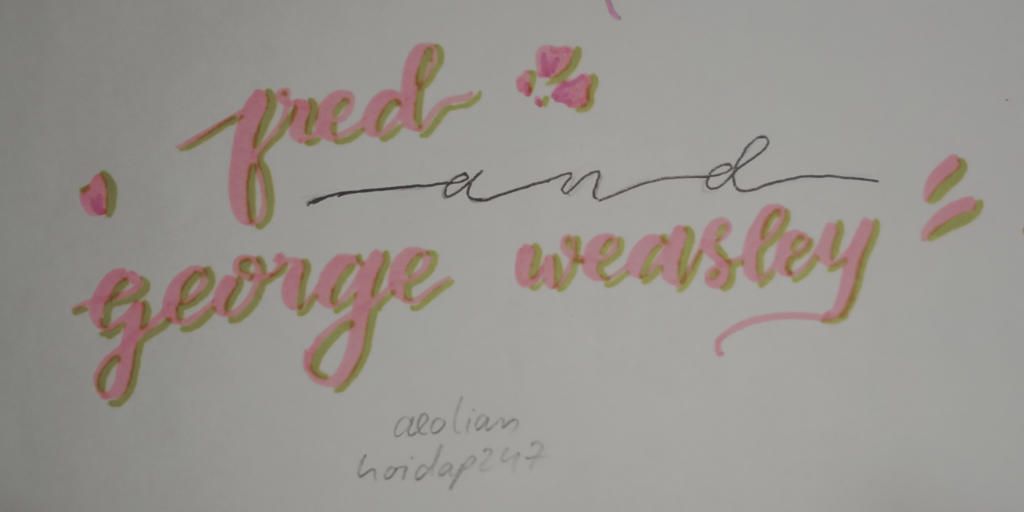 fred
and
george weasley
aeolian
hoidap247